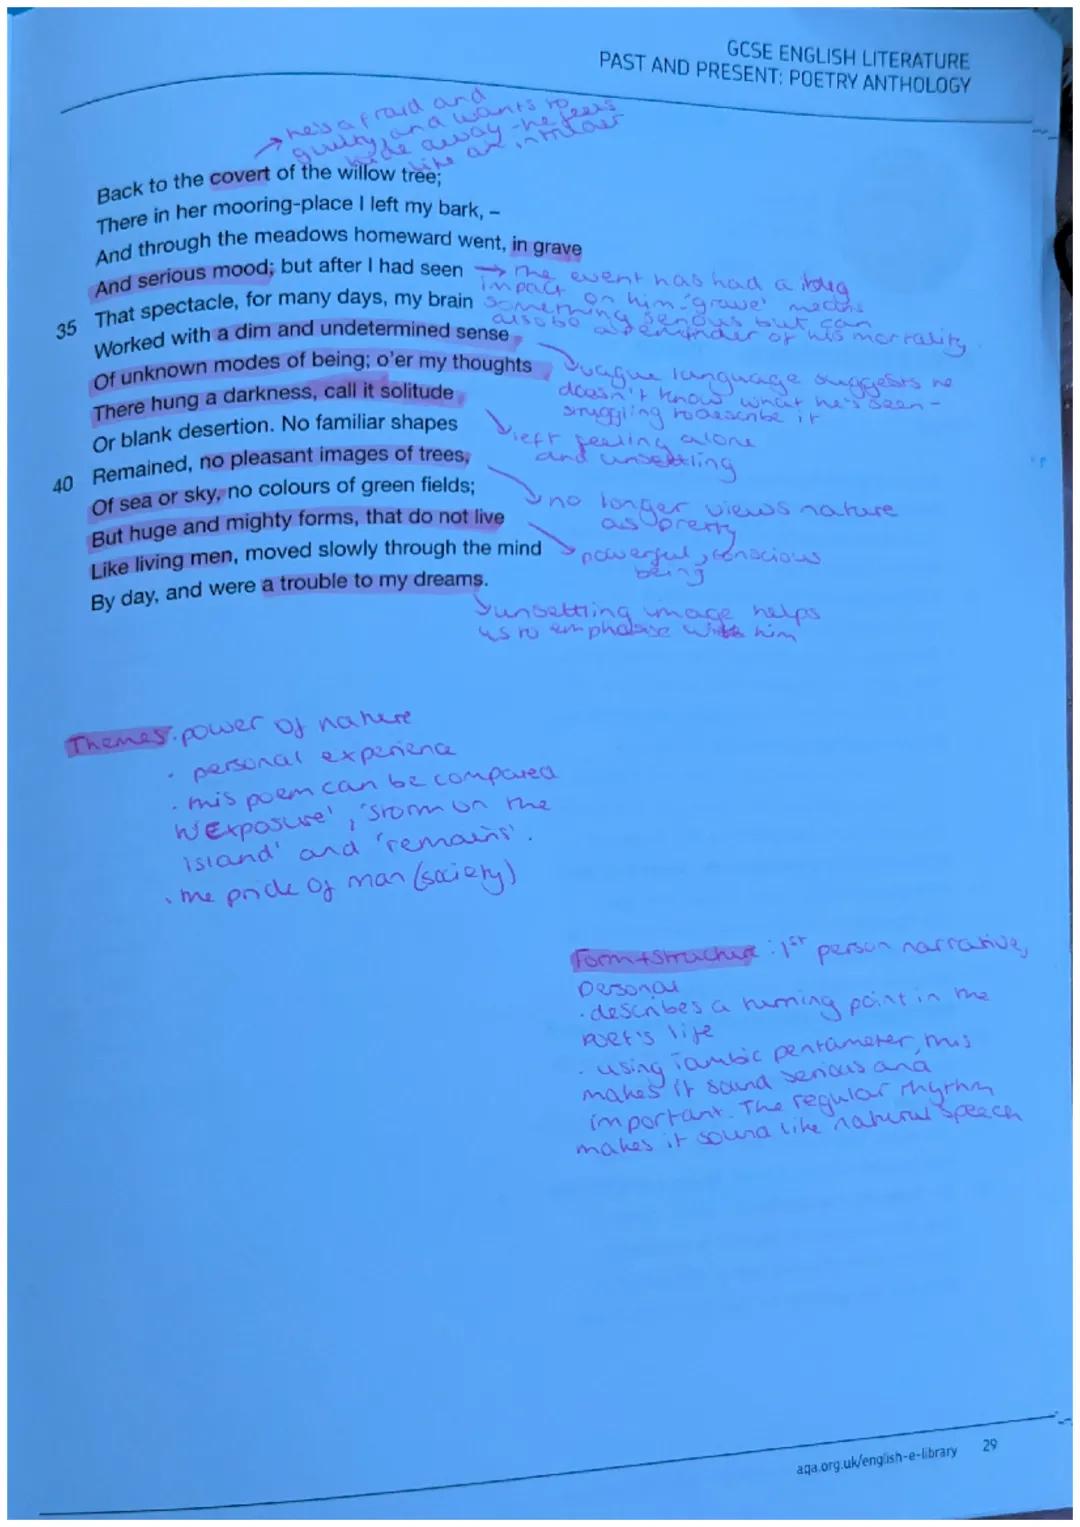 GCSE ENGLISH LITERATURE
PAST AND PRESENT: POETRY ANTHOLOGY
he's afraid and
guilty, and wants to
hide away - he feels
like an intruder
Back to the covert of the willow tree;
There in her mooring-place I left my bark, –
And through the meadows homeward went, in grave
And serious mood; but after I had seen
35 That spectacle, for many days, my brain
Worked with a dim and undetermined sense
Of unknown modes of being; o'er my thoughts
There hung a darkness, call it solitude
Or blank desertion. No familiar shapes
40 Remained, no pleasant images of trees,
Of sea or sky, no colours of green fields;
But huge and mighty forms, that do not live
Like living men, moved slowly through the mind
By day, and were a trouble to my dreams.
The event has had a big
impact on him 'grave' means
something serious but can
also be a reminder of his mortality.
vague language suggests he
doesn't know what he's seen -
struggling to describe it
left feeling alone
and unsettling
no longer views nature
as pretty
powerful, conscious
being
unsettling image helps
us to emphasise with him
Themes · power of nature
· personal experience
· this poem can be compared
w 'Exposure', 'Storm on the
island' and 'remains'.
· the pride of man (society)
Form + Structure : 1st person narrative,
personal
· describes a turning point in the
poet's life
· using iambic pentameter, this
makes it sound serious and
important. The regular rhythm
makes it sound like natural speech
aqa.org.uk/english-e-library 29